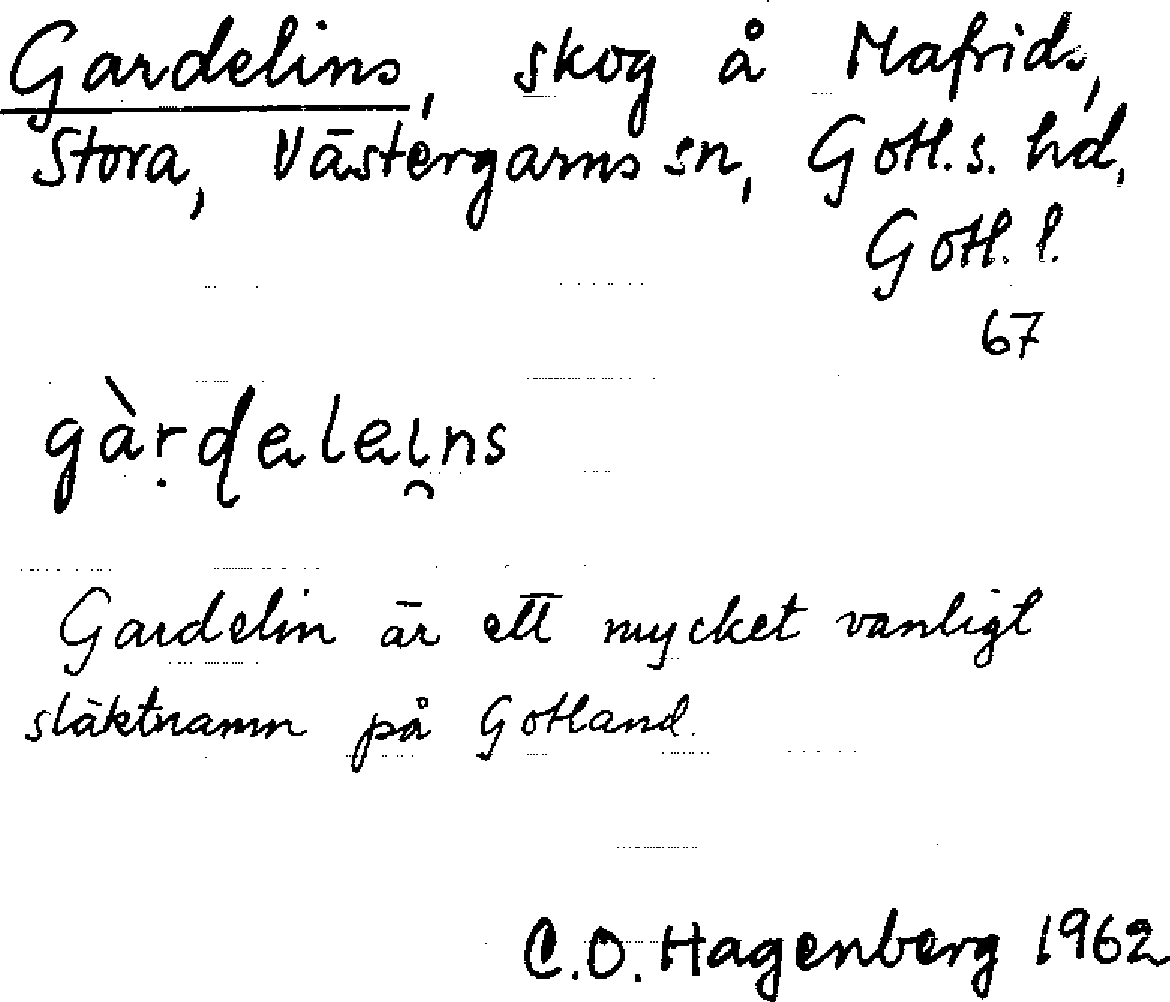 Gardelins, skog å Mafrids,
Stora, Västergarns sn, Gotl. s. hd,
Gotl. l.
67
gàṛdαlαi̯ns
Gardelin är ett mycket vanligt
släktnamn på Gotland.
C.O. Hagenberg 1962